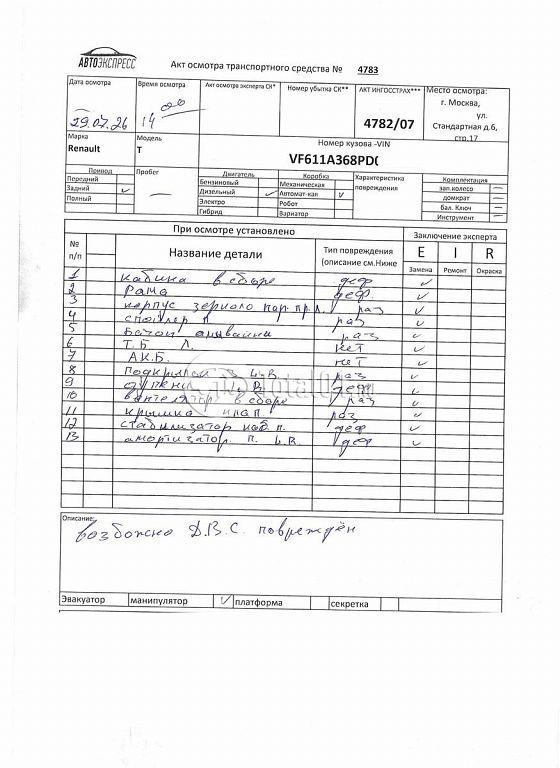 АВТОЭКСПРЕСС
Акт осмотра транспортного средства № 4783
Дата осмотра
Время осмотра
Акт осмотра эксперта СК*
Номер убытка СК**
АКТ ИНГОССТРАХ***
Место осмотра:
29.07.26
14 00
4782/07
г. Москва,
ул.
Стандартная д.6,
стр.17
Марка
Модель
Номер кузова -VIN
Renault
T
VF611A368PD(
Привод
Пробег
Двигатель
Коробка
Характеристика повреждения
Комплектация
Передний
Бензиновый
Механическая
зап.колесо —
Задний ✓
—
Дизельный ✓
Автомат-кая ✓
домкрат —
Полный
Электро
Робот
бал. Ключ —
Гибрид
Вариатор
Инструмент —
При осмотре установлено
Заключение эксперта
№ п/п
Название детали
Тип повреждения (описание см.Ниже
E I R
Замена Ремонт Окраска
1 кабина в сборе деф ✓
2 Рама деф. ✓
3 корпус зеркало пр.л. раз ✓
4 спойлер л раз ✓
5 Бачок омывайки раз ✓
6 Т.Б Л. нет ✓
7 А.К.Б. нет ✓
8 подкрылки з раз ✓
9 деф ✓
10 в сборе раз ✓
11 крышка раз ✓
12 стабилизатор п. деф ✓
13 амортизатор п. деф ✓
Описание:
возможно Д.В.С. повреждён
Эвакуатор манипулятор ✓ платформа секретка